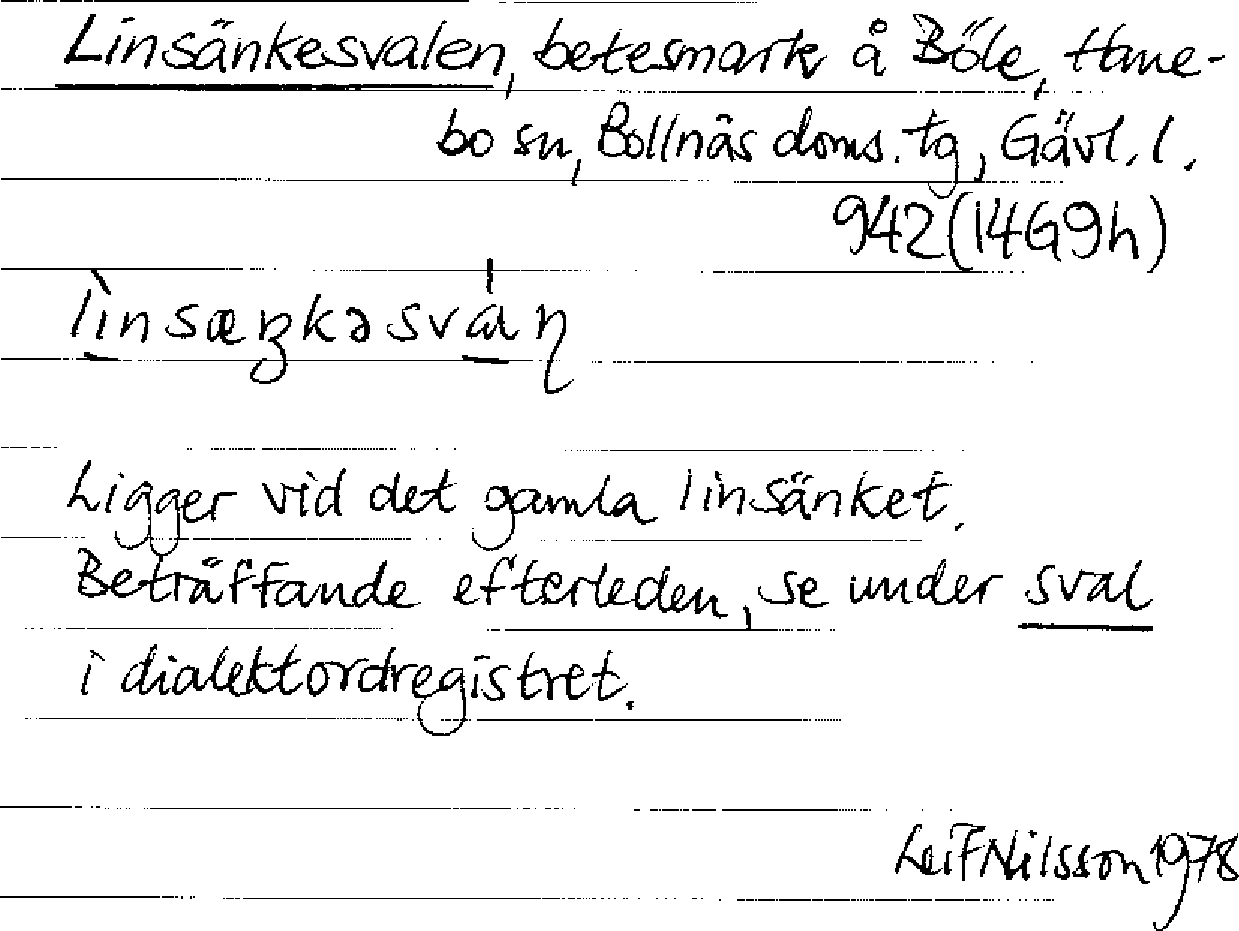 Linsänkesvalen, betesmark å Böle, Hane-
bo sn, Bollnäs doms. tg, Gävl. l.
942 (14G9h)
lìnsæŋkəsvàṇ
Ligger vid det gamla linsänket.
Beträffande efterleden, se under sval
i dialektordregistret.
Leif Nilsson 1978